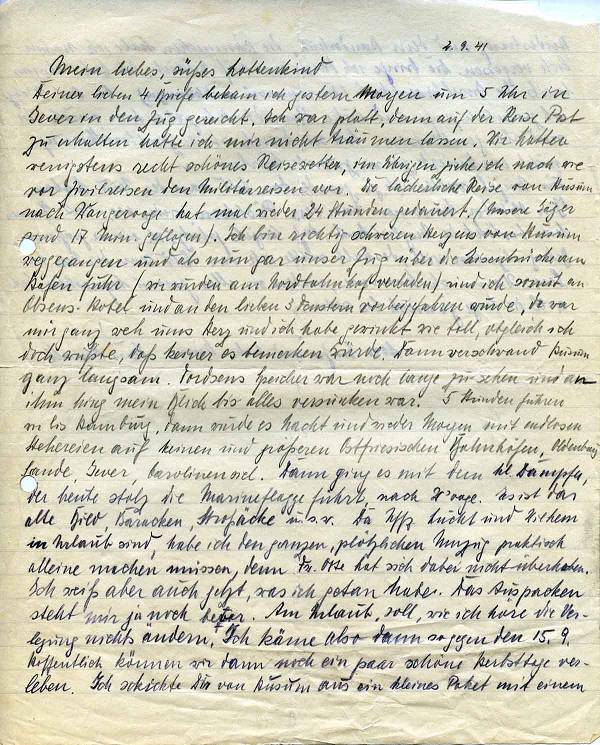 2.9.41
Mein liebes, süßes Lottenkind
Deine lieben 4 Briefe bekam ich gestern Morgen um 5 Uhr in
Jever in den Zug gereicht. Ich war platt, denn auf der Reise Post
zu erhalten hätte ich mir nicht träumen lassen. Wir hatten
wenigstens recht schönes Reisewetter, im Übrigen ziehe ich nach wie
vor Zivilreisen den Militärreisen vor. Die lächerliche Reise von Husum
nach Wangerooge hat mal wieder 24 Stunden gedauert. (Unsere Jäger
sind 17 Min. geflogen). Ich bin richtig schweren Herzens von Husum
weggegangen und als nun gar unser Zug über die Eisenbrücke am
Hafen fuhr (wir wurden am Nordbahnhof verladen) und ich somit an
Hotel und an den lieben 3 Fenstern vorbeigefahren wurde, da war
mir ganz weh ums Herz und ich habe gewinkt wie toll, obgleich ich
doch wußte, daß keiner es bemerken würde. Dann verschwand Husum
ganz langsam. Speicher war noch lange zu sehen und an
ihm hing mein Blick bis alles versunken war. 5 Stunden fuhren
wir bis Hamburg, dann wurde es Nacht und wieder Morgen mit endlosen
Stehereien auf kleinen und größeren Ostfriesischen Bahnhöfen, Oldenburg
Sande, Jever, Carolinensiel. Dann ging es mit dem kl. Dampfer,
der heute stolz die Marineflagge führt, nach W'ooge. Es ist das
alte Lied, Baracken, Strohsäcke u.s.w. Da Uffz. und
in Urlaub sind, habe ich den ganzen, plötzlichen Umzug praktisch
alleine machen müssen, denn hat sich dabei nicht überhoben.
Ich weiß aber auch jetzt, was ich getan habe. Das Auspacken
steht mir ja noch bevor. Am Urlaub, soll, wie ich höre die Ver-
legung nichts ändern. Ich käme also dann so gegen den 15.9.
Hoffentlich können wir dann noch ein paar schöne Herbsttage ver-
leben. Ich schickte Dir von Husum aus ein kleines Paket mit einem